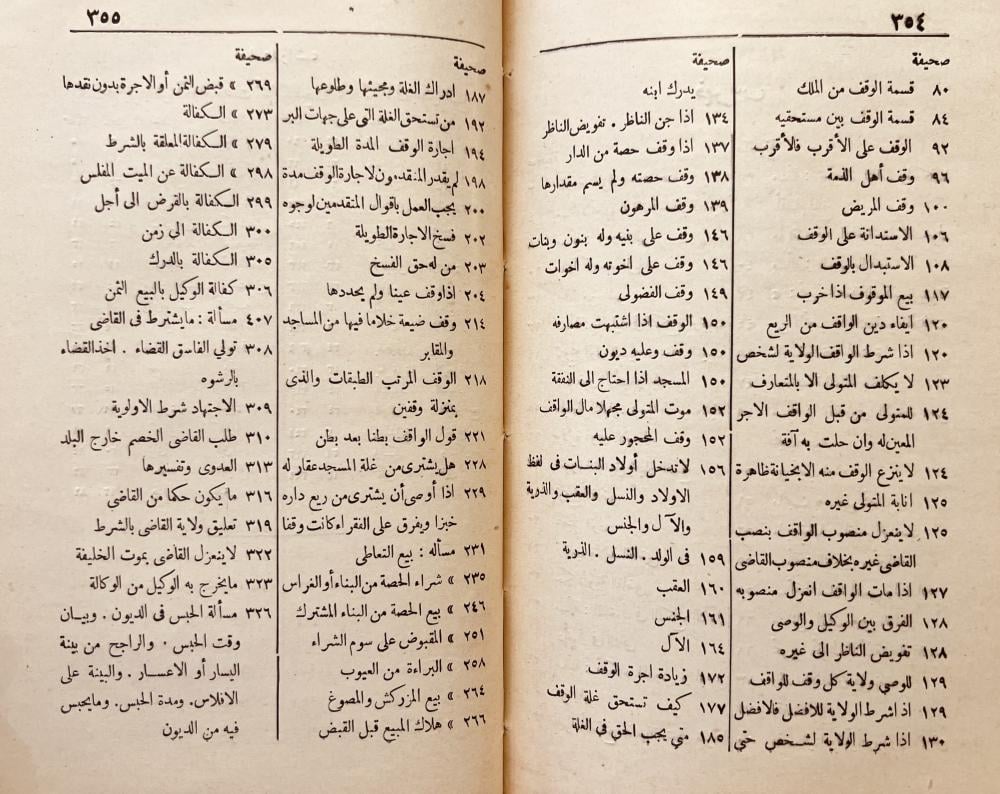 ٣٥٤
صحيفة
٨٠ قسمة الوقف من الملك
٨٤ قسمة الوقف بين مستحقيه
٩٢ الوقف على الأقرب فالأقرب
٩٦ وقف أهل الذمة
١٠٠ وقف المريض
١٠٦ الاستدانة على الوقف
١٠٨ الاستبدال بالوقف
١١٧ بيع الموقوف اذا خرب
١٢٠ ايفاء دين الواقف من الريع
١٢٠ اذا شرط الواقف الولاية لشخص
١٢٣ لا يكلف المتولى الا بالمتعارف
١٢٤ للمتولى من قبل الواقف الاجر
المعين له وان حلت به آفة
١٢٤ لا ينزع الوقف منه الا بخيانة ظاهرة
١٢٥ انابة المتولى غيره
١٢٥ لا ينعزل منصوب الواقف بنصب
القاضى غيره بخلاف منصوب القاضى
١٢٧ اذا مات الواقف انعزل منصوبه
١٢٨ الفرق بين الوكيل والوصى
١٢٨ تفويض الناظر الى غيره
١٢٩ للوصى ولاية كل وقف للواقف
١٢٩ اذ اشرط الولاية للافضل فالافضل
١٣٠ اذا شرط الولاية لشخص حتى
صحيفة
يدرك ابنه
١٣٤ اذا جن الناظر . تفويض الناظر
١٣٧ اذا وقف حصة من الدار
١٣٨ وقف حصته ولم يسم مقدارها
١٣٩ وقف المرهون
١٤٦ وقف على بنيه وله بنون وبنات
١٤٦ وقف على اخوته وله اخوات
١٤٩ وقف الفضولى
١٥٠ الوقف اذا اشتبهت مصارفه
١٥٠ وقف وعليه ديون
١٥٠ المسجد اذا احتاج الى النفقة
١٥٢ موت المتولى مجهلا مال الواقف
١٥٢ وقف المحجور عليه
١٥٦ لا تدخل أولاد البنات فى لفظ
الاولاد والنسل والعقب والذرية
والآل والجنس
١٥٩ فى الولد . النسل . الذرية
١٦٠ العقب
١٦١ الجنس
١٦٤ الآل
١٧٢ زيادة اجرة الوقف
١٧٧ كيف تستحق غلة الوقف
١٨٥ متى يجب الحق فى الغلة
٣٥٥
صحيفة
١٨٧ ادراك الغلة ومجيئها وطلوعها
١٩٢ من تستحق الغلة التى على جهات البر
١٩٤ اجارة الوقف المدة الطويلة
١٩٨ لم يقدر المتقدمون لاجارة الوقف مدة
٢٠٠ يجب العمل باقوال المتقدمين لوجوه
٢٠٢ فسخ الاجارة الطويلة
٢٠٣ من له حق الفسخ
٢٠٤ اذا وقف عينا ولم يحددها
٢١٤ وقف ضيعة خلا ما فيها من المساجد
والمقابر
٢١٨ الوقف المرتب الطبقات والذى
بمنزلة وقفين
٢٢١ قول الواقف بطنا بعد بطن
٢٢٨ هل يشترى من غلة المسجد عقار له
٢٢٩ اذا أوصى أن يشترى من ريع داره
خبزا ويفرق على الفقراء كانت وقفا
٢٣١ مسأله : بيع التعاطى
٢٣٥ » شراء الحصة من البناء أو الغراس
٢٤٦ » بيع الحصة من البناء المشترك
٢٥١ » المقبوض على سوم الشراء
٢٥٨ » البراءة من العيوب
٢٦٤ » بيع المزركش والمصوغ
٢٦٦ » هلاك المبيع قبل القبض
صحيفة
٢٦٩ » قبض الثمن أو الاجرة بدون نقدها
٢٧٣ » الكفالة
٢٧٩ » الكفالة المعلقة بالشرط
٢٩٨ » الكفالة عن الميت المفلس
٢٩٩ الكفالة بالقرض الى أجل
٣٠٠ الكفالة الى زمن
٣٠٥ الكفالة بالدرك
٣٠٦ كفالة الوكيل بالبيع الثمن
٤٠٧ مسألة : ما يشترط فى القاضى
٣٠٨ تولي الفاسق القضاء . اخذ القضاء
بالرشوه
٣٠٩ الاجتهاد شرط الاولوية
٣١٠ طلب القاضى الخصم خارج البلد
٣١٣ العدوى وتفسيرها
٣١٦ ما يكون حكما من القاضى
٣١٩ تعليق ولاية القاضى بالشرط
٣٢٢ لا ينعزل القاضى بموت الخليفة
٣٢٣ ما يخرج به الوكيل من الوكالة
٣٢٦ مسألة الحبس فى الديون . وبيان
وقت الحبس . والراجح من بينة
اليسار أو الاعسار . والبينة على
الافلاس. ومدة الحبس. وما يحبس
فيه من الديون